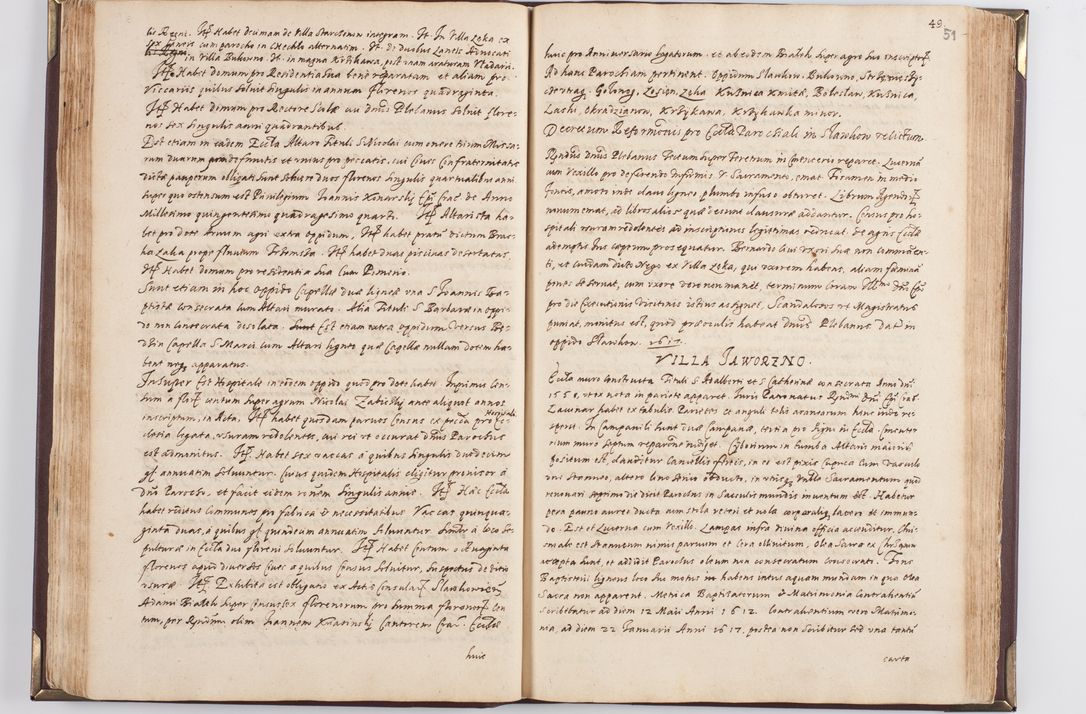 bis Regni. Itẽ Habet decimam de Villa Starczinow integram. It. In Villa Zoka ex
sex laneis cum parocho in Chechlo alternatim. It. de duobus Laneis Advocati
in Villa Bukowno. It. in magna Krzikawa, post viam araturam Vladarii.
Itẽ Habet domum pro Residentia sua bene reparatam et aliam pro
Viccariis quibus solvit singulis in annum florenos quadraginta.
Itẽ Habet domum pro Rectore Scolæ cui dnus Plebanus solvit flore-
nos sex singulis anni quadrantibus.
Est etiam in eadem Eccla Altare Tituli S Nicolai cum onere trium Missa-
rum duarum pro defunctis et unius pro peccatis, cui Cives Confraternitatis
dictæ pauperum obligati sunt solvere duos florenos singulis quartualibus anni
super quo ostensum est Privilegium Ioannis Konarski Epi Crac de Anno
Millesimo quingentesimo quadragesimo quarto. Itẽ Altarista ha-
bet pro dote Arvum agri extra oppidum. Itẽ habet pratũ dictum
prope fluvium Itẽ habet duas piscinas desertatas.
Itẽ Habet domum pro residentia sua Cum Pomerio.
Sunt etiam in hoc oppido Capellæ duæ lineæ una S Ioannis Bap-
tistæ consecrata cum Altari murato. Alia Tituli S Barbaræ in oppi-
do non consecrata desolata. Est etiam extra oppidum versus
Capella S Marci cum Altari ligneo quæ Capellæ nullam dotem ha-
bent neq apparatus.
Insuper Est Hospitale in eodem oppido quod pro dote habet Inprimis Cen-
sum a flor centum super agrum Nicolai Zabicskij ante aliquot annos
inscriptum, in Acta. Itẽ habet quosdam parvos Census ex pecũ pro Hospitali
clesia legata, usuram redolentes, cui rei ut occurat dnus Parochus
est admonitus. Itẽ Habet sex vaccas a quibus singulis duodecim
gl annuatim solvuntur. Cuius quidem Hospitalis eligitur provisor a
Dno Parocho, et facit eidem ronem singulis annis. Itẽ Hæc Eccla
habet reditus Communes pro fabrica et necessitatibus Vaccas quinqua-
ginta duas, a quibus gl quindecim annuatim solvuntur. a loco Se-
pulturæ in Eccla duo floreni solvuntur. Itẽ Habet Centum octuaginta
florenos apud diversos Cives a quibus Census solvitur, suspectus de vitio
usuræ. Itẽ Exhibita est obligatio ex Actis Consular Slawkovien
Adami Bialek super Census sex florenorum pro summa florenor cen-
tum, per Rndum olim Ioannem Kwatinski Cantorem Crac Ecclæ
huic

49
51
huic pro Anniversario legatorum et ab eodem Bialek super agro suo inscriptor
Ad hanc Parochiam pertinent. Oppidum Slawkow. Bukowno,
Golonog. Losien. Zeka Kuznica Kmitæ, Boleslaw, Kuznica,
Laski, Okradzionow, Krzykawa, Krzykawka minor.
Decretum Reformõnis pro Eccla Parochiali in Slawkow relictum.
Rndus dnus Plebanus Tectum super Feretrum in Cœmeterii reparet. Lucernã
cum Vexillo pro deferendo Infirmis V Sacramento, emat Foramen in medio
Fontis, amoto inde clavo ligneo plumbo infuso obturet. Librum Agendor
novum emat, ad libros alios quæ desunt clausuræ addantur. Census pro ho-
spitali usuram redolentes ad inscriptiones legitimas reducat. De agris Ecclæ
ademptis Ius cæptum prosequatur. Bernardo Civi uxori suæ non commoran-
ti, et cuidam ex Villa Zeka, qui uxorem habens, aliam fæminã
penes se servat, cum uxore vero non manet, terminum Coram Illmo Dno Epo
pro die Executionis Visitationis istius assignet, Scandalosos ut Magistratus
puniat, monitus est, quod præ oculis habeat dnus Plebanus Dat in
oppido Slawkow. 1617.
VILLA IAWORZNO.
Eccla muro constructa Tituli S Adalberti et S Catharinæ consecrata Anni dni
155, ut ex nota in pariete apparet. Iuris Patronatus Rndmi Dni Epi Crac
Lacunar habet ex tabulis. Parietes et anguli telis aranearum hinc inde res-
persi. In Campanili sunt duæ Campanæ, tertia pro signo in Eccla. Cimiter-
rium muro septum reparatione indiget. Ciborium in tumba Altaris maioris
positum est, clauditur Cancellis ferreis, in eo est pixis Cuprea Cum Vasculo
uno stanneo, altero lino Anio obducto, in utrisq Vnblo Sacramentum quod
renovari septimo die dicit Parochus in Sacculis mundis inventum est Habetur
pera panno aureo ducta cum stola veteri et nola corporalia lacera et immun-
do. Est et Lucerna cum Vexillo. Lampas infra divina officia accenditur, Chri-
smale est stanneum nimis parvum et Cera oblinitum, Olea Sacra ex Chrismario
accepta sunt, et addidit Parochus oleum non consecratum Consecrati. Fons
Baptismi ligneus loco suo motus in habens intus aquam mundam in quo Olea
Sacra non apparent. Metrica Baptisatorum et Matrimonia Contrahentiũ
scribebatur ad diem 12 Maii Anni 1612. Contrahentium vero Matrimo-
nia, ad diem 22 Ianuarii Anni 1617. postea non scribitur sed una tantũ
carta